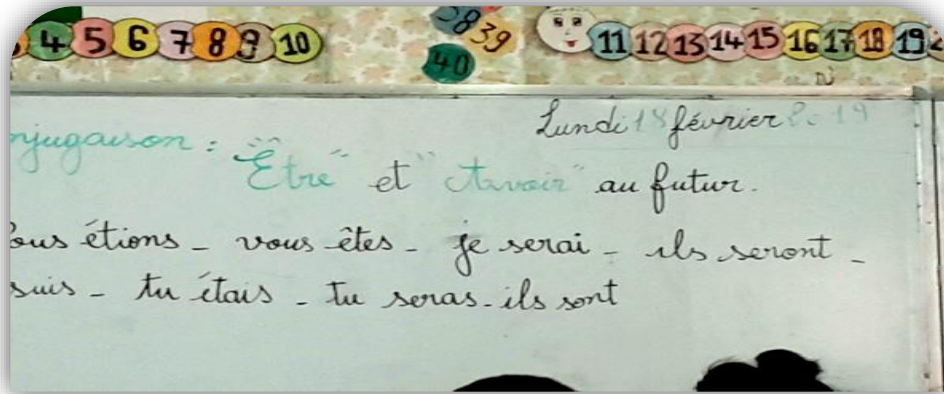 4 5 6 7 8 9 10
38 39
40
11 12 13 14 15 16 17 18 19 2
Lundi 18 février 2019
njugaison : "Être" et "Avoir" au futur.
ous étions - vous êtes - je serai - ils seront -
suis - tu étais - tu seras - ils sont